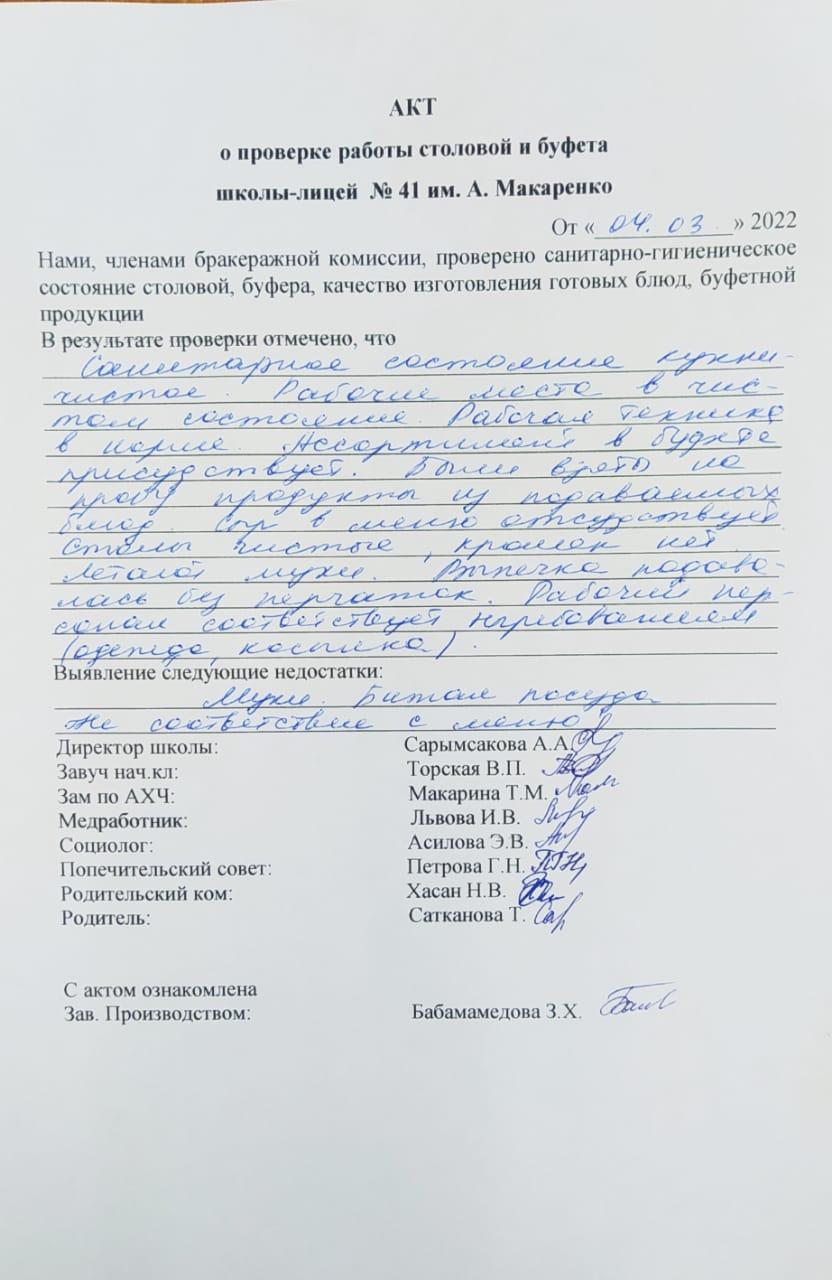 АКТ
о проверке работы столовой и буфета
школы-лицей № 41 им. А. Макаренко
От « 04. 03 » 2022
Нами, членами бракеражной комиссии, проверено санитарно-гигиеническое
состояние столовой, буфера, качество изготовления готовых блюд, буфетной
продукции
В результате проверки отмечено, что
Санитарное состояние кухни-
чистое. Рабочие места в чис-
том состоянии. Рабочая техника
в норме. Ассортимент в буфете
присудствует. Были взяты на
пробу продукты из подаваемых
блюд. Сыр в меню отсудствует
Столы чистые, кромок нет.
Летают мухи. Выпечка подава-
лась без перчаток. Рабочий пер-
сонал соответствует требованиям
(одежда, косынка).
Выявление следующие недостатки:
Мухи. Битая посуда
Не соответствие с меню
Директор школы: Сарымсакова А.А.
Завуч нач.кл: Торская В.П.
Зам по АХЧ: Макарина Т.М.
Медработник: Львова И.В.
Социолог: Асилова Э.В.
Попечительский совет: Петрова Г.Н.
Родительский ком: Хасан Н.В.
Родитель: Сатканова Т.
С актом ознакомлена
Зав. Производством: Бабамамедова З.Х.